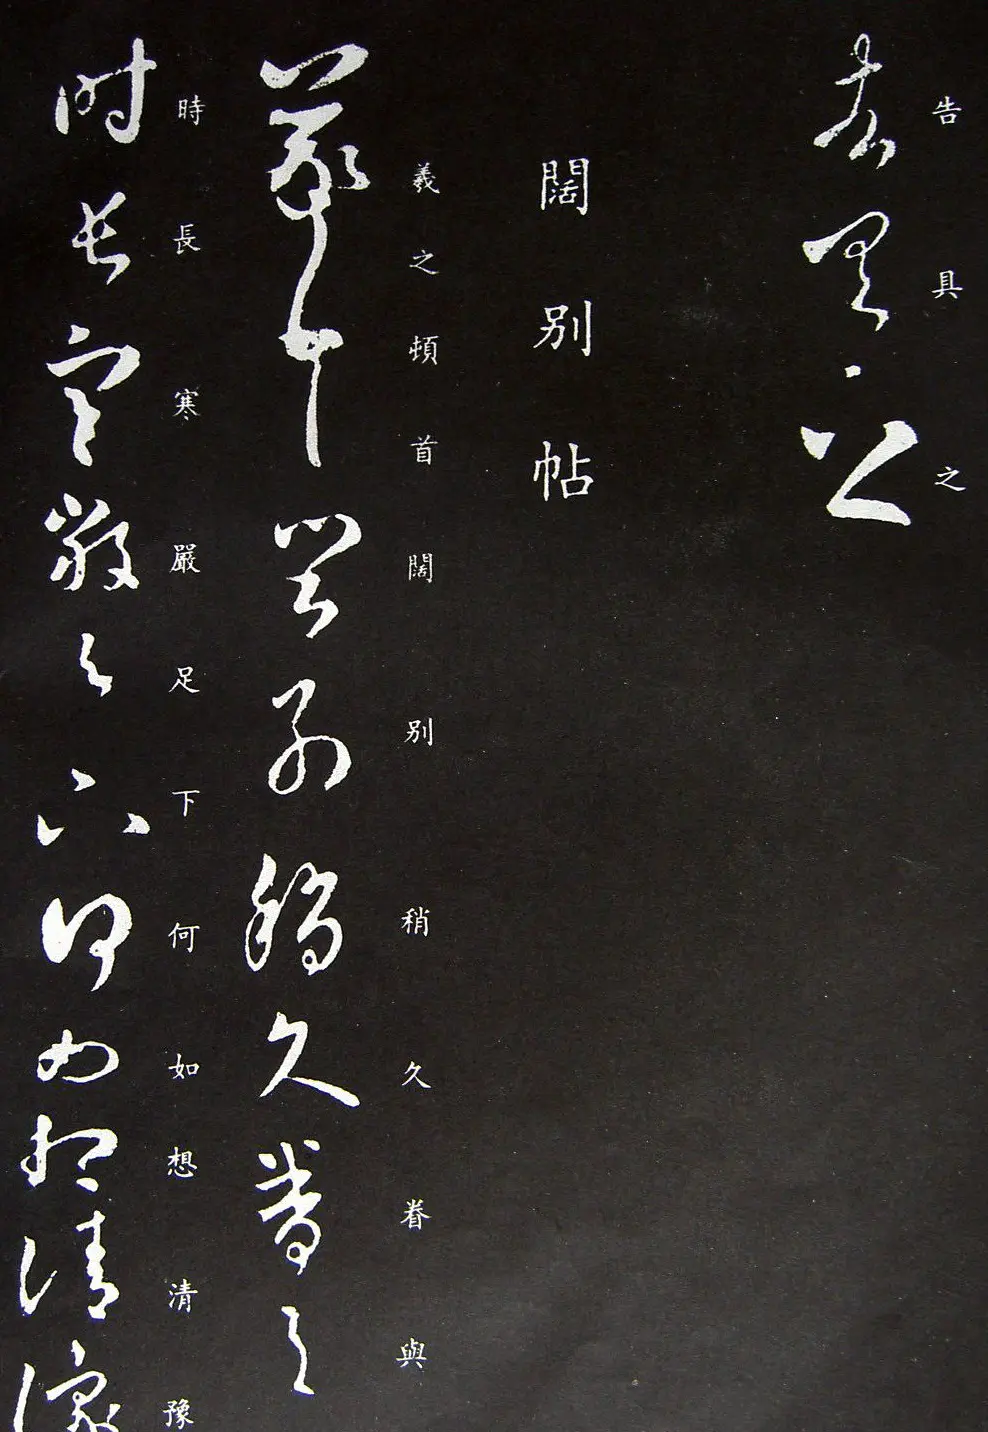 告具之
闊別帖
羲之頓首闊別稍久眷與
時長寒嚴足下何如想清豫